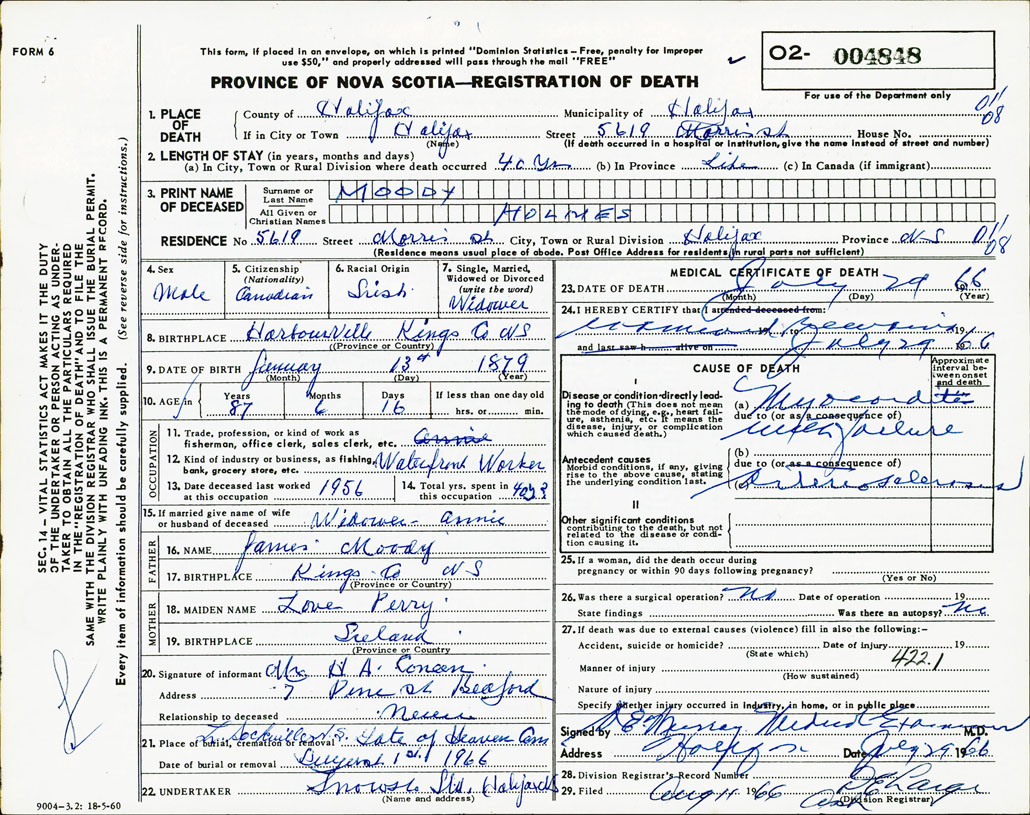 FORM 6
This form, if placed in an envelope, on which is printed "Dominion Statistics—Free, penalty for improper
use $50," and properly addressed will pass through the mail "FREE"
PROVINCE OF NOVA SCOTIA—REGISTRATION OF DEATH
02- 004848
For use of the Department only
1. PLACE OF DEATH County of Halifax Municipality of Halifax 01/08
If in City or Town Halifax Street 5619 Morris St House No.
(Name) (If death occurred in a hospital or institution, give the name instead of street and number)
2. LENGTH OF STAY (in years, months and days)
(a) In City, Town or Rural Division where death occurred 40 Yrs (b) In Province Life (c) In Canada (if immigrant)
3. PRINT NAME OF DECEASED Surname or Last Name MOODY
All Given or Christian Names HOLMES
RESIDENCE No 5619 Street Morris St City, Town or Rural Division Halifax Province N-S 01/08
(Residence means usual place of abode. Post Office Address for residents in rural parts not sufficient)
4. Sex Male
5. Citizenship (Nationality) Canadian
6. Racial Origin Irish
7. Single, Married, Widowed or Divorced (write the word) Widower
8. BIRTHPLACE Harbourville Kings Co NS
(Province or Country)
9. DATE OF BIRTH January 13th 1879
(Month) (Day) (Year)
10. AGE Years 87 Months 6 Days 16 If less than one day old
hrs. or min.
OCCUPATION
11. Trade, profession, or kind of work as
fisherman, office clerk, sales clerk, etc. Annie
12. Kind of industry or business, as fishing,
bank, grocery store, etc. Waterfront Worker
13. Date deceased last worked at this occupation 1956
14. Total yrs. spent in this occupation 40
15. If married give name of wife
or husband of deceased Widower - Annie
FATHER
16. NAME James Moody
17. BIRTHPLACE Kings Co NS
(Province or Country)
MOTHER
18. MAIDEN NAME Love Perry
19. BIRTHPLACE Ireland
(Province or Country)
20. Signature of informant Mrs H A
Address 7 Pine St Bedford
Relationship to deceased
21. Place of burial, cremation or removal L. Sackville N.S. Gate of Heaven Cem
Date of burial or removal August 1st. 1966
22. UNDERTAKER Snows Ltd. Halifax NS
(Name and address)
9004-3.2: 18-5-60
MEDICAL CERTIFICATE OF DEATH
23. DATE OF DEATH July 29 1966
(Month) (Day) (Year)
24. I HEREBY CERTIFY that I attended deceased from
19 , to 19
and last saw h alive on July 29 1966
CAUSE OF DEATH
Approximate interval between onset and death
I
Disease or condition directly leading to death (This does not mean the mode of dying, e.g., heart failure, asthenia, etc. It means the disease, injury, or complication which caused death.)
(a) Myocarditis
due to (or as a consequence of)
with failure
Antecedent causes
Morbid conditions, if any, giving rise to the above cause, stating the underlying condition last.
(b)
due to (or as a consequence of)
(c) Arteriosclerosis
II
Other significant conditions
contributing to the death, but not related to the disease or condition causing it.
25. If a woman, did the death occur during
pregnancy or within 90 days following pregnancy?
(Yes or No)
26. Was there a surgical operation? No Date of operation 19
State findings Was there an autopsy? No
27. If death was due to external causes (violence) fill in also the following:—
Accident, suicide or homicide? Date of injury 19
(State which)
422.1
Manner of injury
(How sustained)
Nature of injury
Specify whether injury occurred in industry, in home, or in public place
Signed by Murray Medical Examiner M.D.
Address Halifax Date July 29 1966
28. Division Registrar's Record Number
29. Filed Aug 11 1966
(Division Registrar)
SEC. 14 – VITAL STATISTICS ACT MAKES IT THE DUTY
OF THE UNDERTAKER OR PERSON ACTING AS UNDER-
TAKER TO OBTAIN ALL THE PARTICULARS REQUIRED
IN THE "REGISTRATION OF DEATH" AND TO FILE THE
SAME WITH THE DIVISION REGISTRAR WHO SHALL ISSUE THE BURIAL PERMIT.
WRITE PLAINLY WITH UNFADING INK. THIS IS A PERMANENT RECORD.
Every item of information should be carefully supplied. (See reverse side for instructions.)